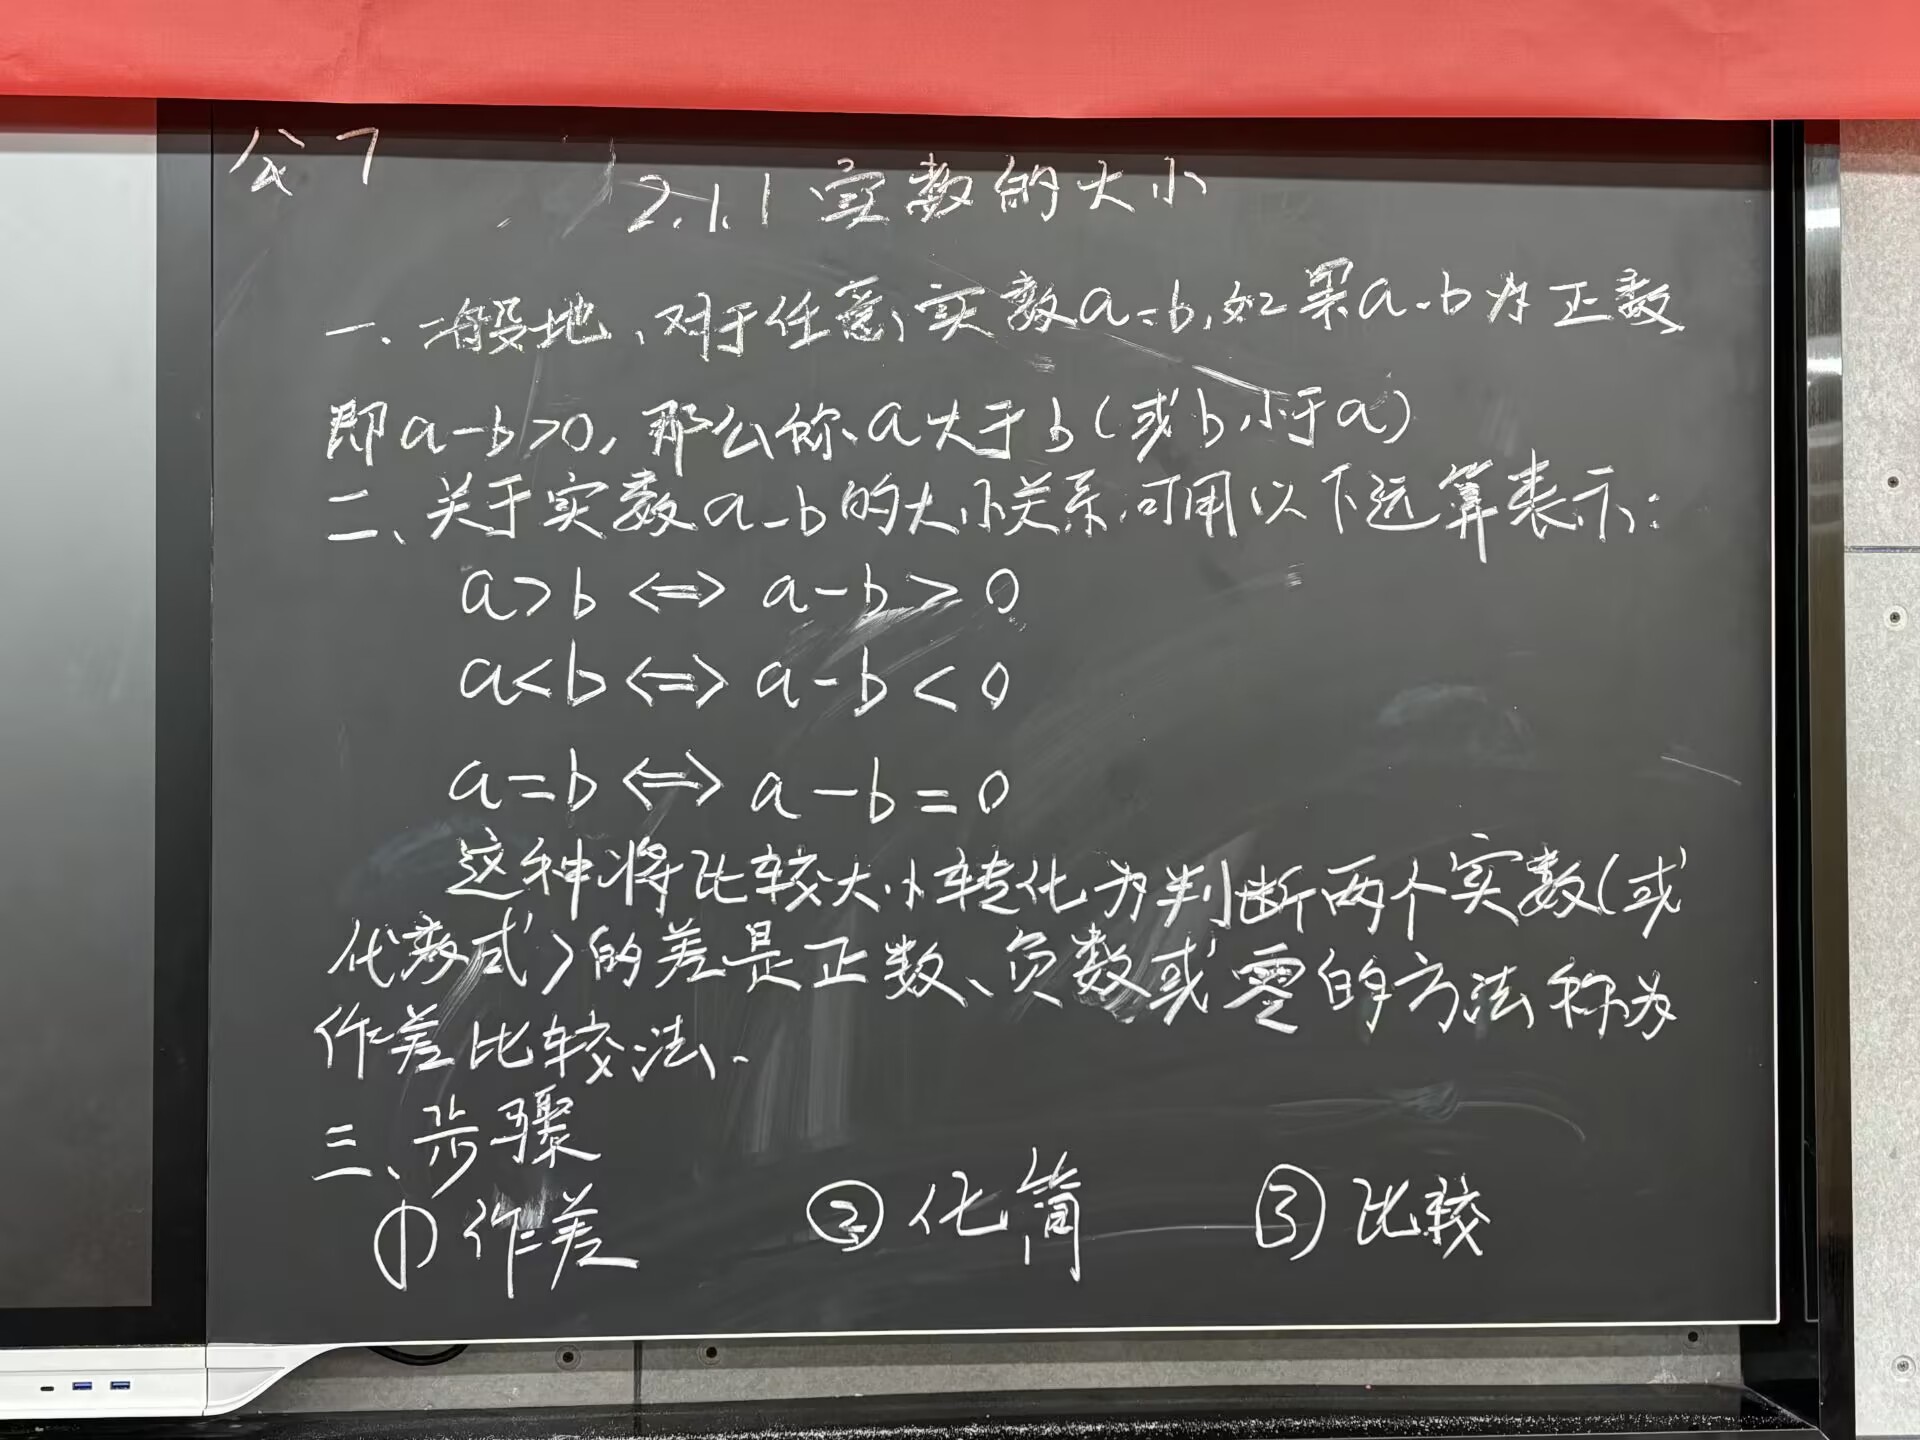 2.1.1 实数的大小
一.一般地,对于任意实数a=b,如果a-b为正数
即a-b>0,那么称a大于b(或b小于a)
二、关于实数a-b的大小关系,可用以下运算表示:
a>b <=> a-b>0
a<b <=> a-b<0
a=b <=> a-b=0
这种将比较大小转化为判断两个实数(或
代数式)的差是正数、负数或零的方法称为
作差比较法.
三、步骤
①作差 ②化简 ③比较